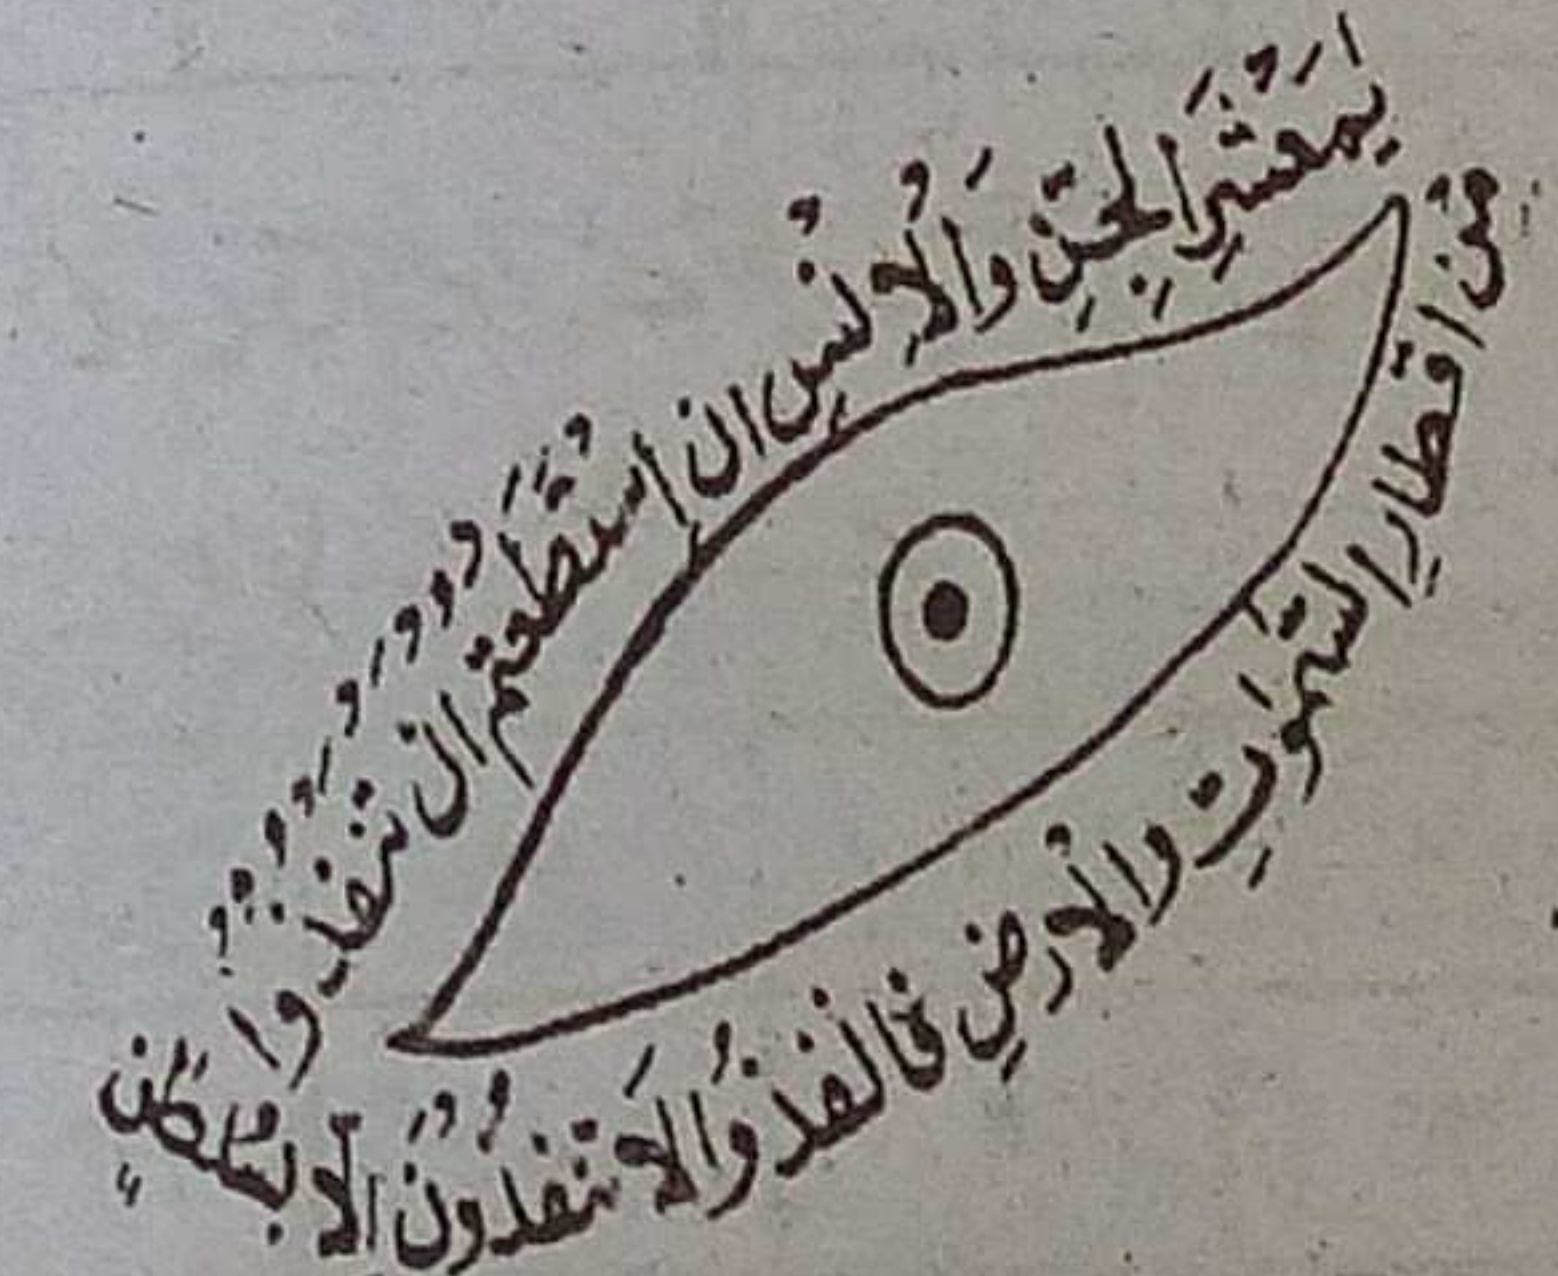 يٰمَعْشَرَ الْجِنِّ وَالْاِنْسِ اِنِ اسْتَطَعْتُمْ اَنْ تَنْفُذُوْا
مِنْ اَقْطَارِ السَّمٰوٰتِ وَالْاَرْضِ فَانْفُذُوْا لَا تَنْفُذُوْنَ اِلَّا بِسُلْطٰنٍ